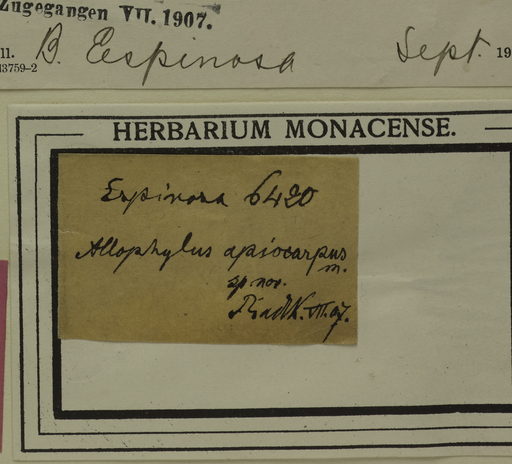 Zugegangen VII. 1907.
ll. B. Espinosa Sept. 19
13759-2
HERBARIUM MONACENSE.
Espinosa 6420
Allophylus apiocarpus
m.
sp. nov.
Radlk. VII. 07.